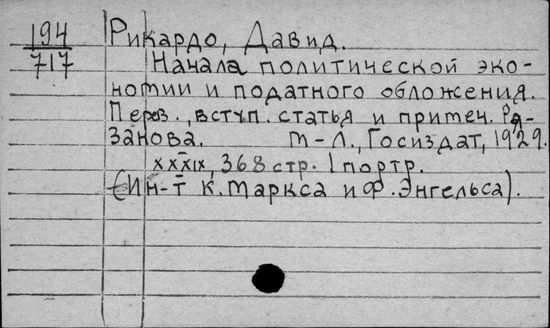 194
717
Рикардо, Давид.
Начала политической эко-
номии и податного обложения.
Перев., вступ. статья и примеч. Ря-
занова. М-Л., Госиздат, 1929.
XXXIX, 368 стр. 1 портр.
(Ин-т К. Маркса и Ф. Энгельса).